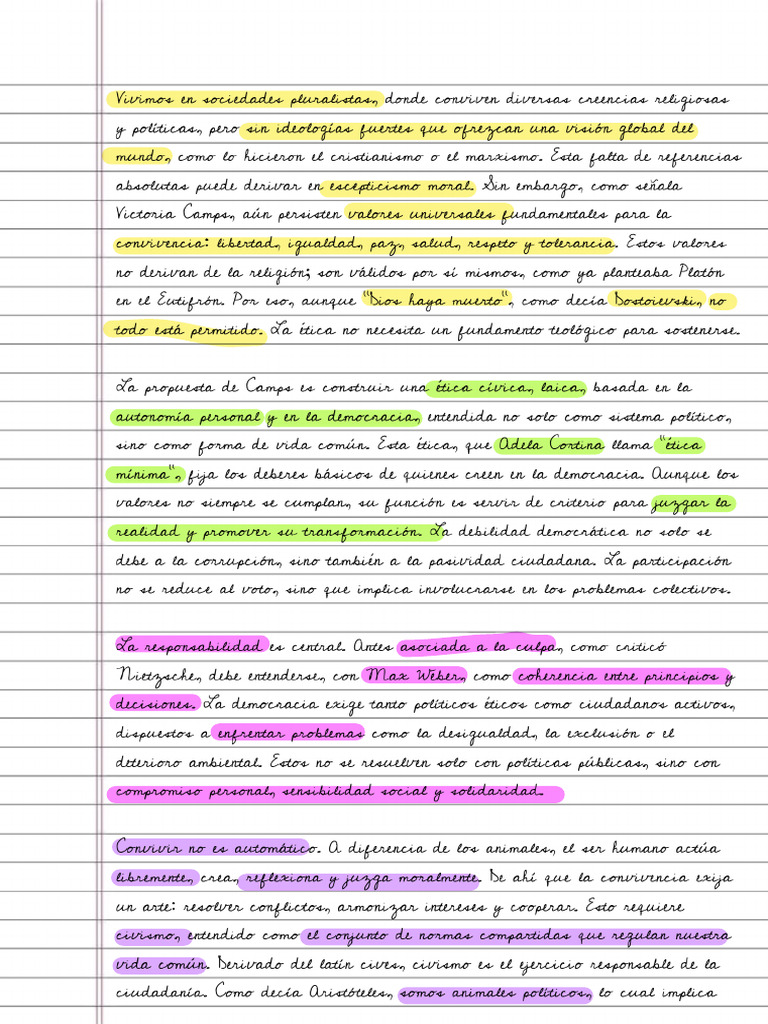 Vivimos en sociedades pluralistas, donde conviven diversas creencias religiosas
y políticas, pero sin ideologías fuertes que ofrezcan una visión global del
mundo, como lo hicieron el cristianismo o el marxismo. Esta falta de referencias
absolutas puede derivar en escepticismo moral. Sin embargo, como señala
Victoria Camps, aún persisten valores universales fundamentales para la
convivencia: libertad, igualdad, paz, salud, respeto y tolerancia. Estos valores
no derivan de la religión; son válidos por sí mismos, como ya planteaba Platón
en el Eutifrón. Por eso, aunque "Dios haya muerto", como decía Dostoievski, no
todo está permitido. La ética no necesita un fundamento teológico para sostenerse.
La propuesta de Camps es construir una ética cívica, laica, basada en la
autonomía personal y en la democracia, entendida no solo como sistema político,
sino como forma de vida común. Esta ética, que Adela Cortina llama "ética
mínima", fija los deberes básicos de quienes creen en la democracia. Aunque los
valores no siempre se cumplan, su función es servir de criterio para juzgar la
realidad y promover su transformación. La debilidad democrática no solo se
debe a la corrupción, sino también a la pasividad ciudadana. La participación
no se reduce al voto, sino que implica involucrarse en los problemas colectivos.
La responsabilidad es central. Antes asociada a la culpa, como criticó
Nietzsche, debe entenderse, con Max Weber, como coherencia entre principios y
decisiones. La democracia exige tanto políticos éticos como ciudadanos activos,
dispuestos a enfrentar problemas como la desigualdad, la exclusión o el
deterioro ambiental. Estos no se resuelven solo con políticas públicas, sino con
compromiso personal, sensibilidad social y solidaridad.
Convivir no es automático. A diferencia de los animales, el ser humano actúa
libremente, crea, reflexiona y juzga moralmente. De ahí que la convivencia exija
un arte: resolver conflictos, armonizar intereses y cooperar. Esto requiere
civismo, entendido como el conjunto de normas compartidas que regulan nuestra
vida común. Derivado del latín cives, civismo es el ejercicio responsable de la
ciudadanía. Como decía Aristóteles, somos animales políticos, lo cual implica